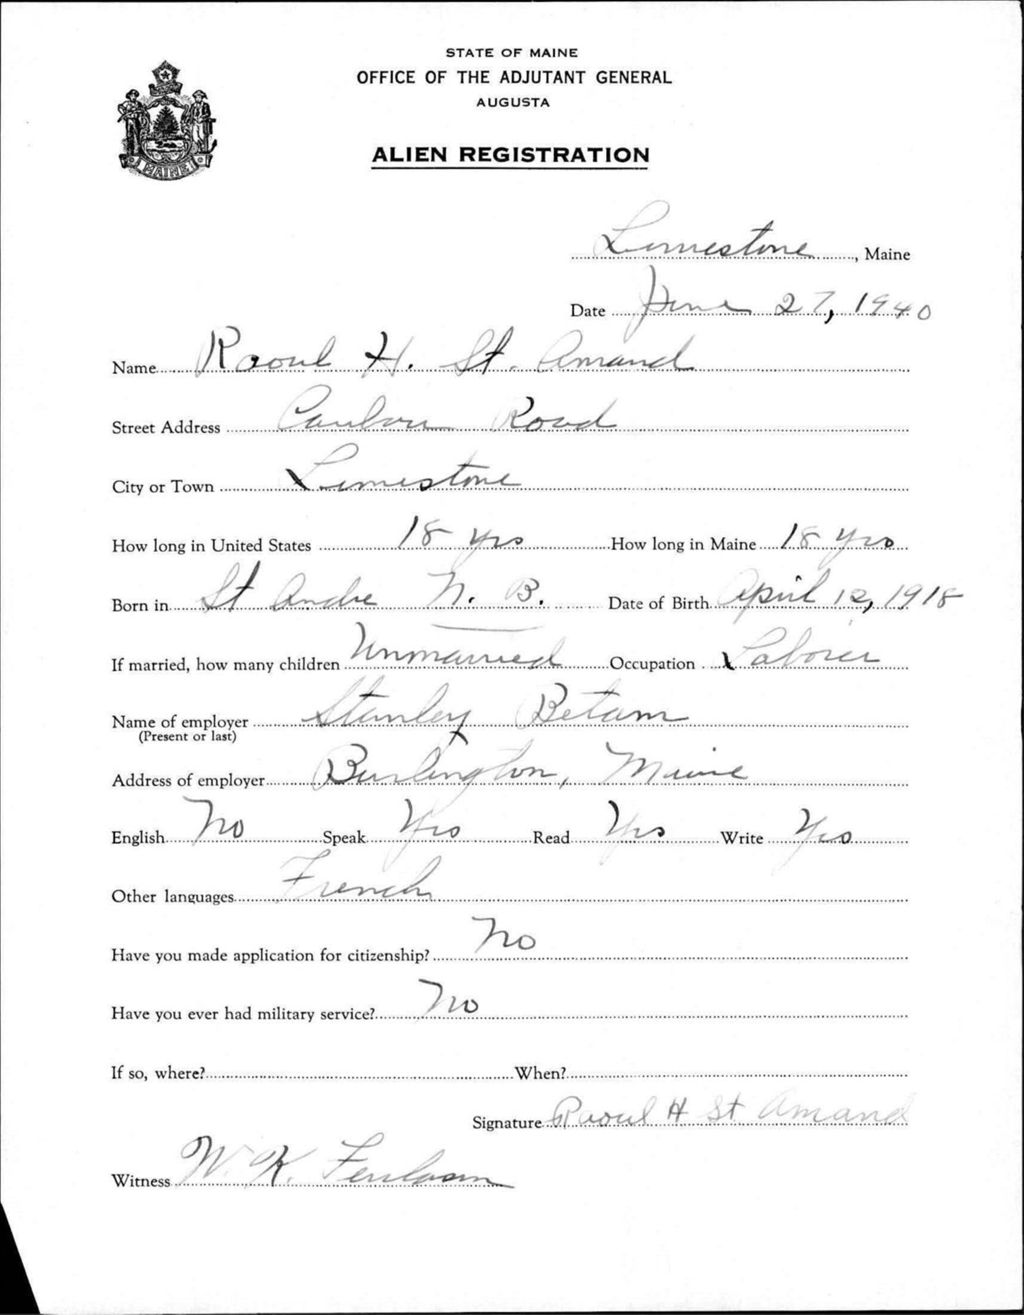 STATE OF MAINE
OFFICE OF THE ADJUTANT GENERAL
AUGUSTA
MAINE
ALIEN REGISTRATION
Limestone, Maine
Date June 27, 1940
Name Raoul H. St. Amand
Street Address Caribou Road
City or Town Limestone
How long in United States 18 yrs How long in Maine 18 yrs
Born in St Andre N. B. Date of Birth April 12, 1918
If married, how many children Unmarried Occupation Laborer
Name of employer Stanley
(Present or last)
Address of employer Burlington, Maine
English No Speak Yes Read Yes Write Yes
Other languages French
Have you made application for citizenship? No
Have you ever had military service? No
If so, where? When?
Signature Raoul H St Amand
Witness W. K.